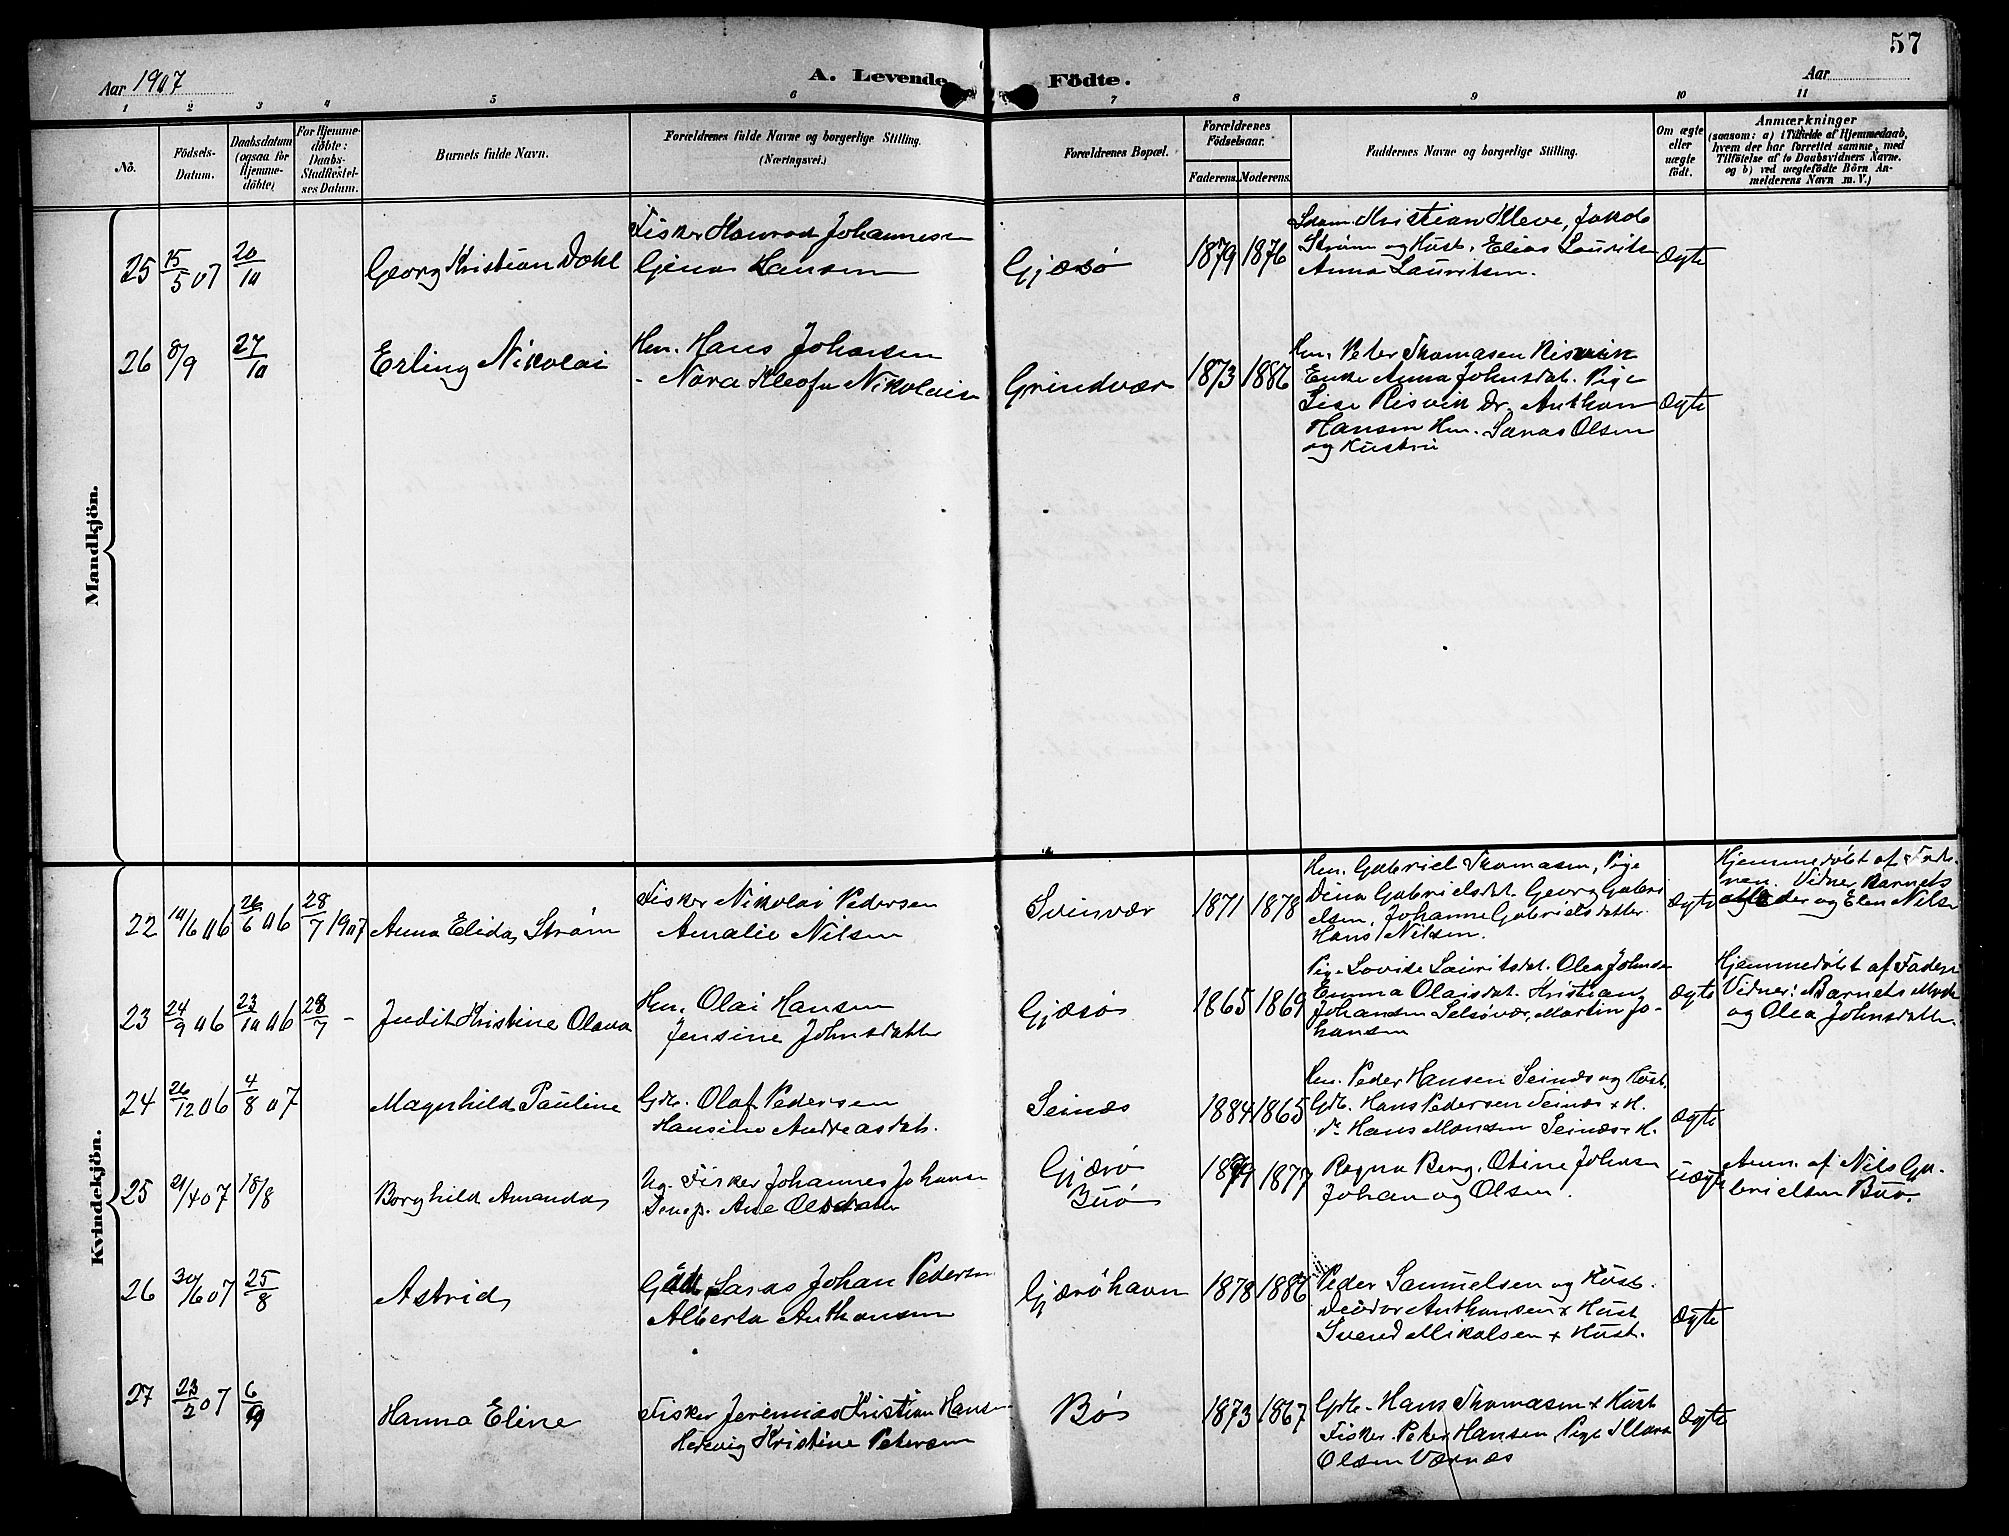 57
Aar 1907
A. Levende Födte.
Aar
1 2 3 4 5 6 7 8 9 10 11
No.
Födsels-Datum.
Daabsdatum (ogsaa for Hjemmedöbte)
For Hjemmedöbte: Daabs-Stadfæstelses Datum.
Barnets fulde Navn.
Forældrenes fulde Navne og borgerlige Stilling.
(Næringsvei.)
Forældrenes Bopæl.
Forældrenes Födselsaar.
Faderens. Moderens.
Faddernes Navne og borgerlige Stilling.
Om ægte eller uægte födt.
Anmærkninger
(saasom: a) i Tilfælde af Hjemmedaab,
hvem der har forrettet samme, med
Tilföielse af to Daabsvidners Navne.
og b) ved uægtefödte Börn An-
melderens Navn m. V.)
Mandkjön.
25 15/5 07 20/10 Georg Kristian Dahl
Fisker Konrad Johannessen
Gina Hansen
Gjæsø 1879 1876
Kristian Kleve, Jakob
Strøm og Hust. Elias Laurits
Anna Lauritsen.
Ægte
26 8/9 27/10 Erling Nikolai
Hm. Hans Johansen
- Nora Kleofa Nikolaisen
Grindvær 1873 1886
Hm. Peter Thomasen Risvik
Enke Anna Johnsdat. Pige
Lise Risvik Dr. Anthon
Hansen Hm. Lanas Olsen
og Hustru
Ægte
Kvindekjön.
22 10/6 06 26/6 06 28/7 1907 Anna Elida Strøm
Fisker Nikolai Pedersen
Amalie Nilsen
Svinvær 1871 1878
Hm. Gabriel Thomasen, Pige
Dina Gabrielsdat. Georg Gabri
elsen, Johanne Gabrielsdatter
Hans Nilsen.
Ægte
Hjemmedøbt af Fade-
ren. Vidner, Barnets
Moder og Elen Nilsen
23 24/9 06 23/10 06 28/7 - Judit Kristine Olava
Hm. Olai Hansen
Jensine Johnsdatter
Gjæsø 1865 1869
Pige Lovise Lauritsdat. Olea Johnsen
Emma Olaisdat. Kristian
Johansen Selsøvær, Martin Jo-
hansen
Ægte
Hjemmedøbt af Faderen
Vidner: Barnets Moder
og Olea Johnsdatter.
24 26/12 06 4/8 07 Magnhild Pauline
Gdb. Olaf Pedersen
Hansine Andreasdat.
Seinæs 1884 1865
Hm. Peder Hansen Seinæs og Hust.
Gdb. Hans Pedersen Seinæs + H.
Dr. Hans Monsen Seinæs + H.
Ægte
25 21/4 07 18/8 Borghild Amanda
Ug. Fisker Johannes Johansen
Tenep. Ane Olsdatter
Gjærø
Buø
1879 1877
Ragna Berg. Otine Johnsen
Johan og Olsen.
Uægte
Anm. af Nils Ga-
brielsen Buø.
26 30/6 07 25/8 Astrid
Lanas Johan Pedersen
Alberta Anthonsen
Gjærøhavn 1878 1886
Peder Samuelsen og Hust.
Teodor Anthonsen + Hust
Svend Mikalsen + Hust.
Ægte
27 23/2 07 6/9 Hanna Eline
Fisker Jeremias Kristian Hansen
Hedevig Kristine Petersen
Bø 1873 1867
Gdb. Hans Thomasen + Hust
Fisker Peter Hansen Pige Mara
Olsen Værnæs
Ægte